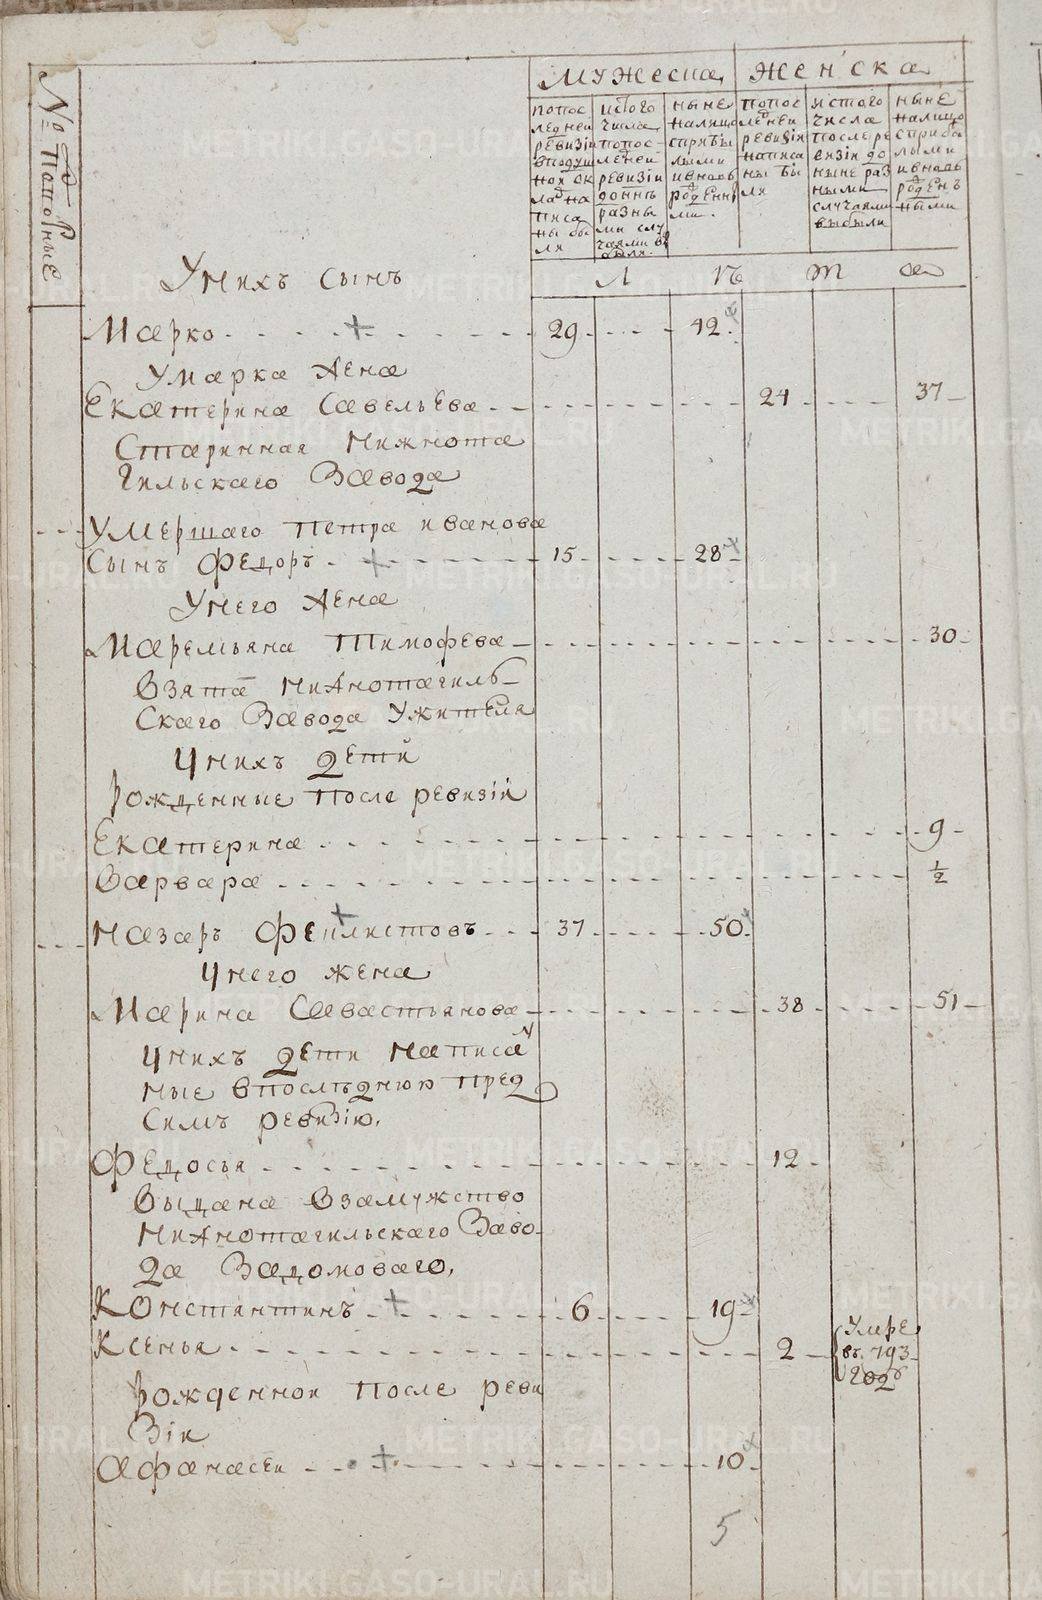 № Попорядные
мужеска
женска
попос
ледней
ревизiи
вподуш
ной ок
ладна
писа
ны бы
ли
истого
числа
попос
ледней
ревизiи
доннъ
разны
ми слу
чаями в
были.
ныне
налицо
сприбы
лыми
ивновь
рожденны
ми.
попос
ледней
ревизiи
написа
ны бы
ли
истого
числа
послере
визiи до
ныне раз
ными
случаями
выбыли
ныне
налицо
сприбы
лыми
ивновь
рожденъ
ными
Унихъ сынъ
Л ѣ т а
Марко 29 42
Умарка жена
Екатерина Савельева 24 37
Старинная Нижнота
гильскаго Завода
Умершаго Петра иванова
Сынъ Федоръ 15 28
Унего жена
Маремьяна Тимофева 30
Взята Нижнотагиль
скаго Завода Ужителя
Унихъ дети
Рожденные После ревизiи
Екатерина 9
Варвара 1/2
Назаръ Феиликтовъ 37 50
Унего жена
Марина Савастьянова 38 51
Унихъ дети написан
ные впослѣднюю пред
симъ ревизiю.
Федосья 12
Выдана Взамужство
Нижнотагильскаго Заво
да Задомоваго.
Константинъ 6 19
Ксенья 2
Умре
въ 793
году
Рожденной После реви
Зiи
афанасеи 10
5
METRIKI.GASO-URAL.RU